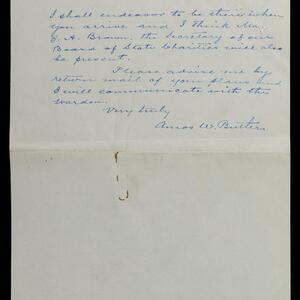 I shall endeavor to be there when
you arrive and I think Mr.
E. A. Brown, the Secretary of our
Board of State Charities will also
be present.
Please advise me by
return mail of your plans and
I will communicate with the
Warden.
Very truly
Amos W. Butler